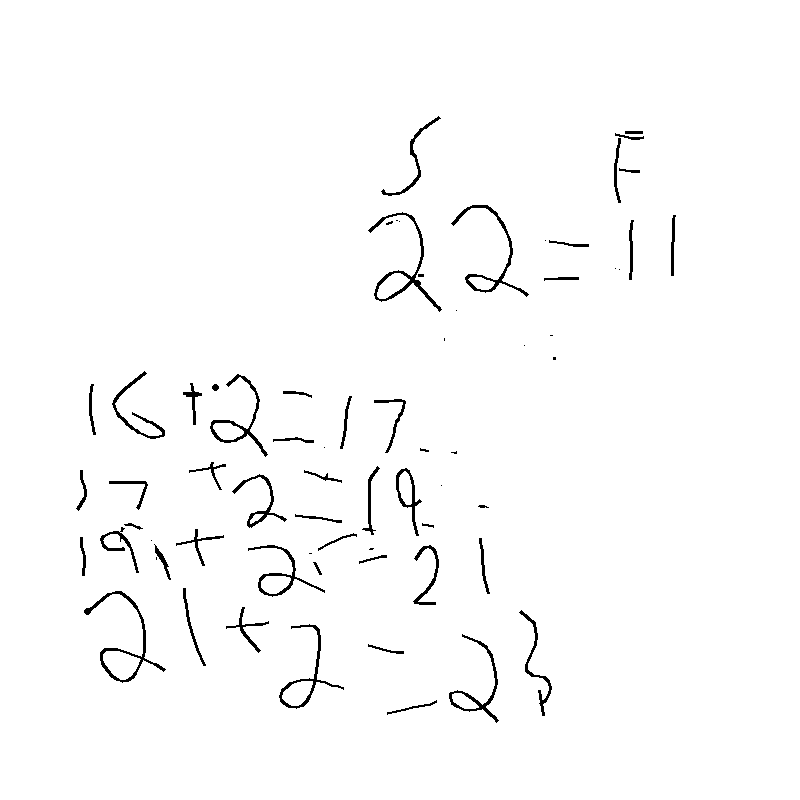 S F
22 = 11
16 + 2 = 17
17 + 2 = 19
19 + 2 = 21
21 + 2 = 23